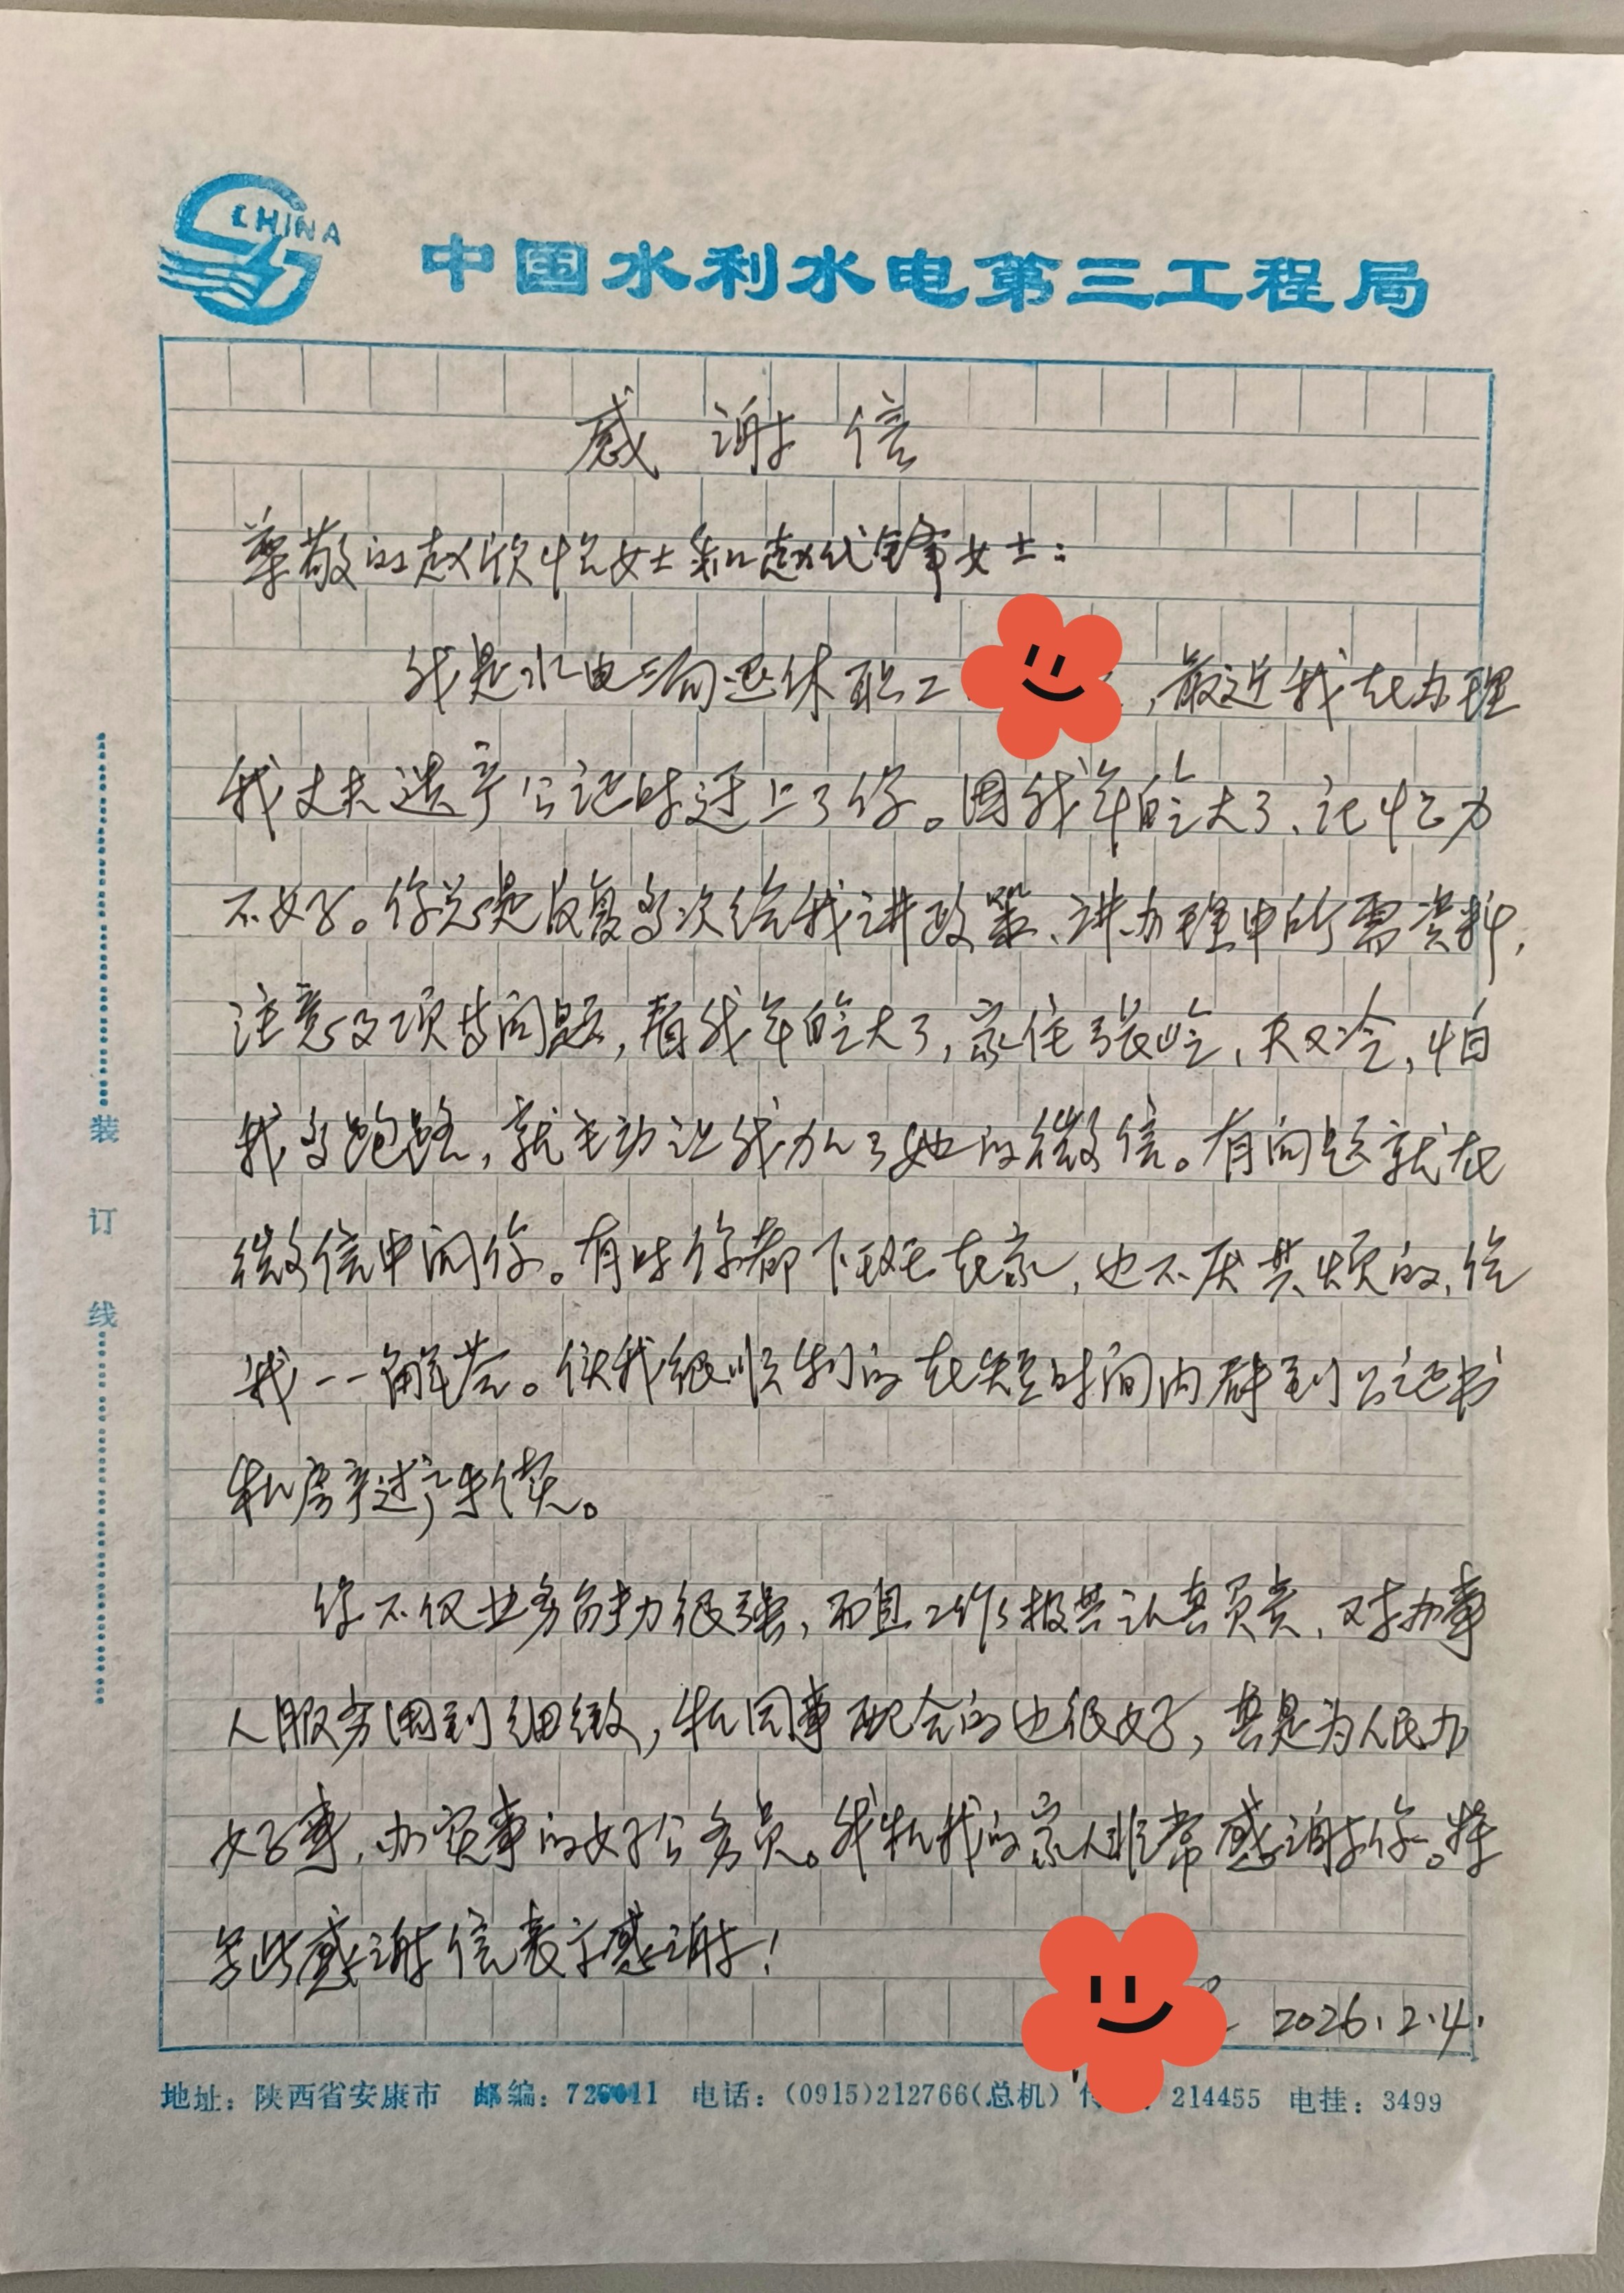 CHINA
中国水利水电第三工程局
感谢信
尊敬的赵欣悦女士和赵代锋女士：
我是水电三局退休职工，最近我在办理
我丈夫遗产公证时遇上了你。因我年龄大了、记忆力
不好。你总是反复多次给我讲政策、讲办理中所需资料，
注意及项与问题，看我年龄大了，家住张岭、天又冷，怕
我多跑路，就主动让我加了她的微信。有问题就在
微信中问你。有时你都下班在家，也不厌其烦的，给
我一一解答。使我很顺利的在短时间内拿到公证书
和房产过户手续。
你不仅业务能力很强，而且工作极其认真负责，对办事
人服务周到细微，和同事配合的也很好，真是为人民办
好事，办实事的好公务员。我和我的家人非常感谢你。特
写此感谢信表示感谢！
2026.2.4.
装订线
地址：陕西省安康市 邮编： 电话：(0915)212766(总机) 214455 电挂：3499